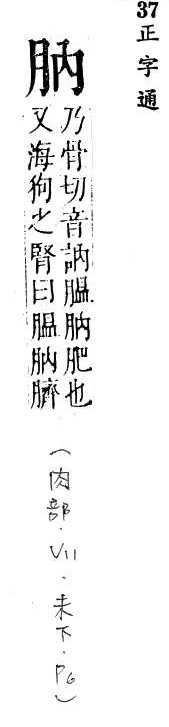 37正字通
肭
乃骨切音訥膃肭肥也
又海狗之腎曰膃肭臍
（肉部．VII．未下．P6）